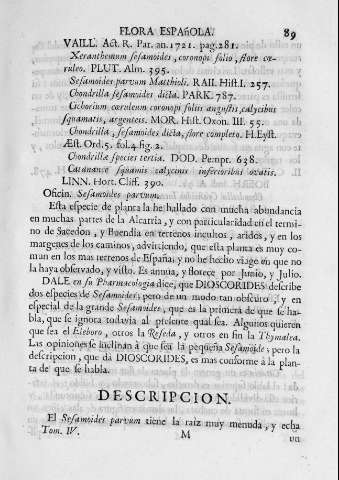 FLORA ESPAñOLA. 89
VAILL. Act. R. Par. an. 1721. pag. 281.
Xeranthemum sesamoides, coronopi folio, flore cæ-
ruleo. PLUT. Alm. 395.
Sesamoides parvum Matthioli. RAII. Hist. I. 257.
Chondrilla sesamoides dicta. PARK. 787.
Cichorium cæruleum coronopi foliis angustis, calycibus
squamatis, argenteis. MOR. Hist. Oxon. III. 55.
Chondrilla, sesamoides dicta, flore completo. H. Eyst.
Æst. Ord. 5. fol. 4. fig. 2.
Chondrillæ species tertia. DOD. Pempt. 638.
Catanance squamis calycinis inferioribus ovatis.
LINN. Hort. Cliff. 390.
Oficin. Sesamoides parvum.
Esta especie de planta la he hallado con mucha abundancia
en muchas partes de la Alcarria, y con particularidad en el termi-
no de Sacedon, y Buendia en terrenos incultos, aridos, y en los
margenes de los caminos, advirtiendo, que esta planta es muy co-
mun en los mas terrenos de España, y no he hecho viage en que no
la haya observado, y visto. Es annua, y florece por Junio, y Julio.
DALE en su Pharmacologia dice, que DIOSCORIDES describe
dos especies de Sesamoides; pero de un modo tan obscuro, y en
especial de la grande Sesamoides, que es la primera de que se ha-
bla, que se ignora todavia al presente qual sea. Algunos quieren
que sea el Eleboro, otros la Reseda, y otros en fin la Thymalea.
Las opiniones se inclinan à que sea la pequeña Sesamoide; pero la
descripcion, que da DIOSCORIDES, es mas conforme à la plan-
ta de que se habla.
DESCRIPCION.
El Sesamoides parvum tiene la raiz muy menuda, y echa
Tom. IV. M un